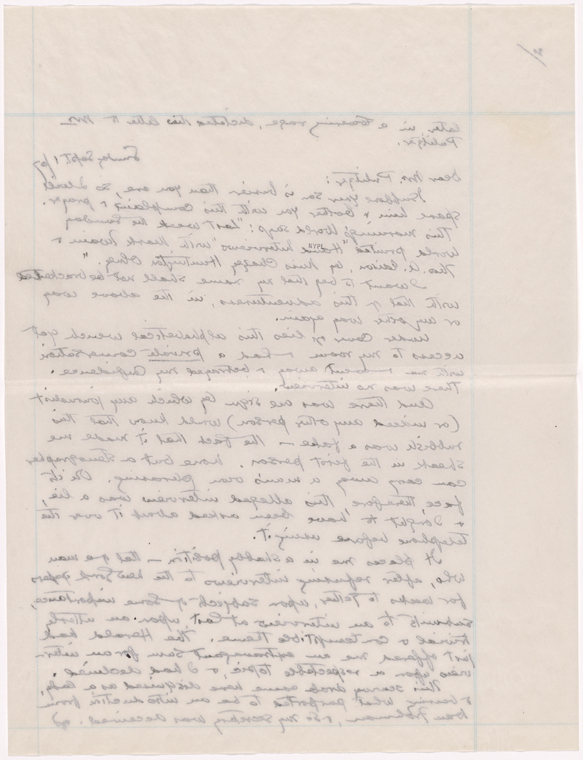 later, in a towering rage, dictated this letter to Mr.
Pulitzer.
Sunday, Sept 1/07
Dear Mr. Pulitzer:
I suppose your son is busier than you are, so I will
spare him & bother you with this complaint & prayer.
This morning's World says: "Last week the Sunday
World printed "Home" Interviews with Mark Twain &
Thos. A. Edison by Miss
I want to beg that my name shall not be bracketed
with that of this adventuress, in the above way
or any other way again.
Under cover of lies this alphabetical wench got
access to my room & had a private conversation
with me & went away & betrayed my confidence.
There was no interview.
And there was one sign by which any journalist
(or indeed any other person) would know that this
rubbish was a fake — the fact that it made me
speak in the first person. None but a stenographer
can carry away a man's own phrasing. On its
face, therefore, this alleged interview was a lie,
& I ought to have been asked about it over the
telephone before using it.
It places me in a shabby position — that of a man
who, after refusing interviews to the New York papers
for weeks together, upon subjects of some importance,
submits to an interview at last upon an utterly
trivial & contemptible theme. The Herald had
just offered me an extravagant sum for an inter-
view upon a respectable topic, & I had declined.
This scurvy drab came here disguised as a lady,
& bearing what purported to be an introduction from
Dan Frohman, & so my secretary was deceived. Of